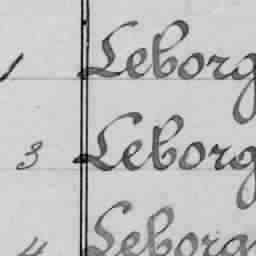 1 Leborg
3 Leborg
4 Leborg